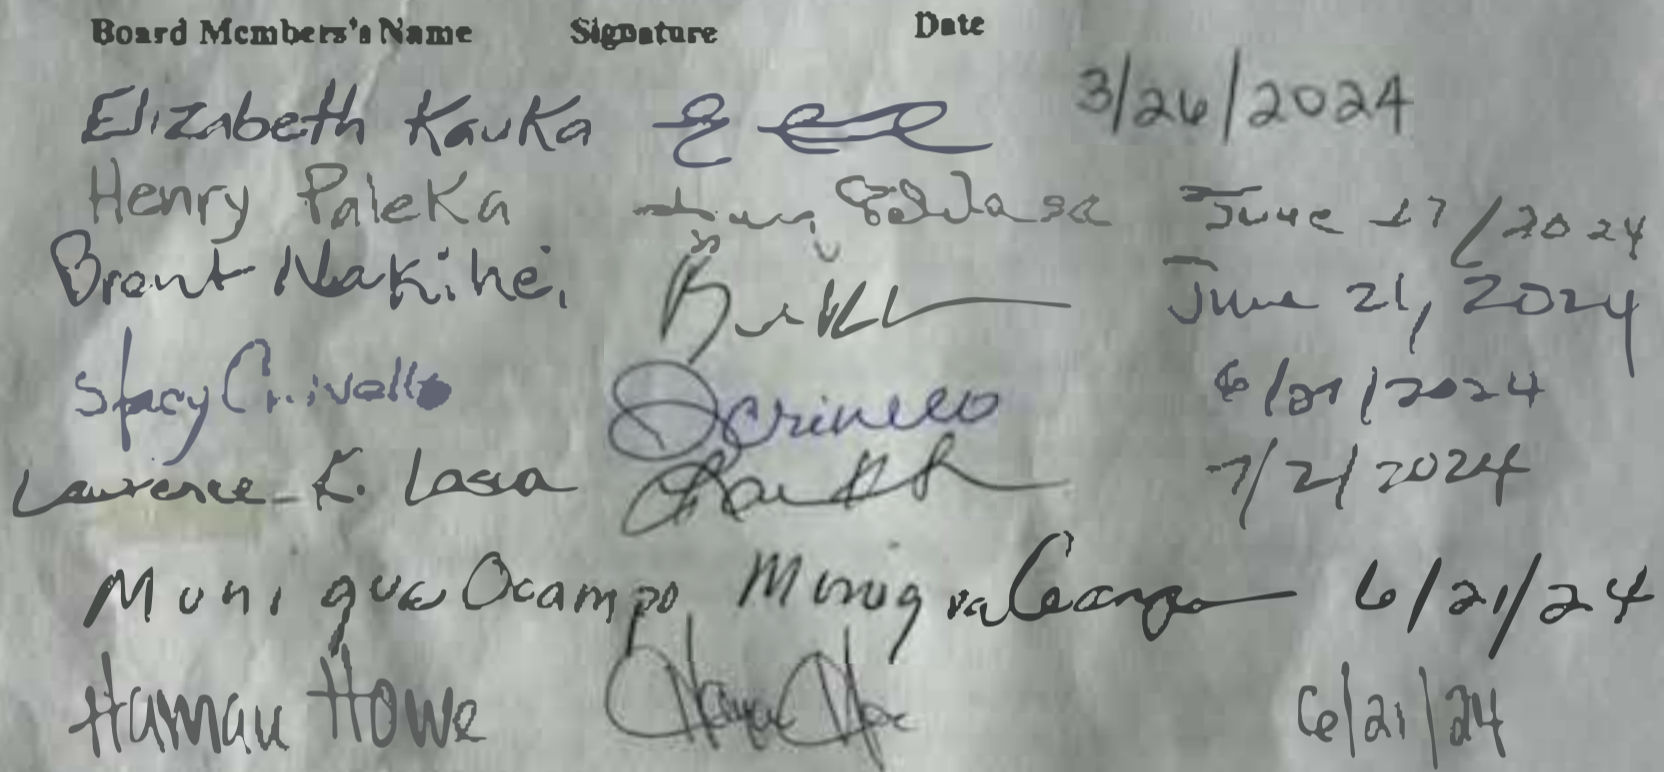 Board Members's Name Signature Date
Elizabeth Kauka 3/26/2024
Henry Paleka June 17/2024
Brent Nakihei June 21, 2024
Stacy Crivello Scrivello 6/21/2024
Lawrence K. Lasua 7/2/2024
Muniqua Ocampo Muniqua Ocampo 6/21/24
Hamau Howe 6/21/24